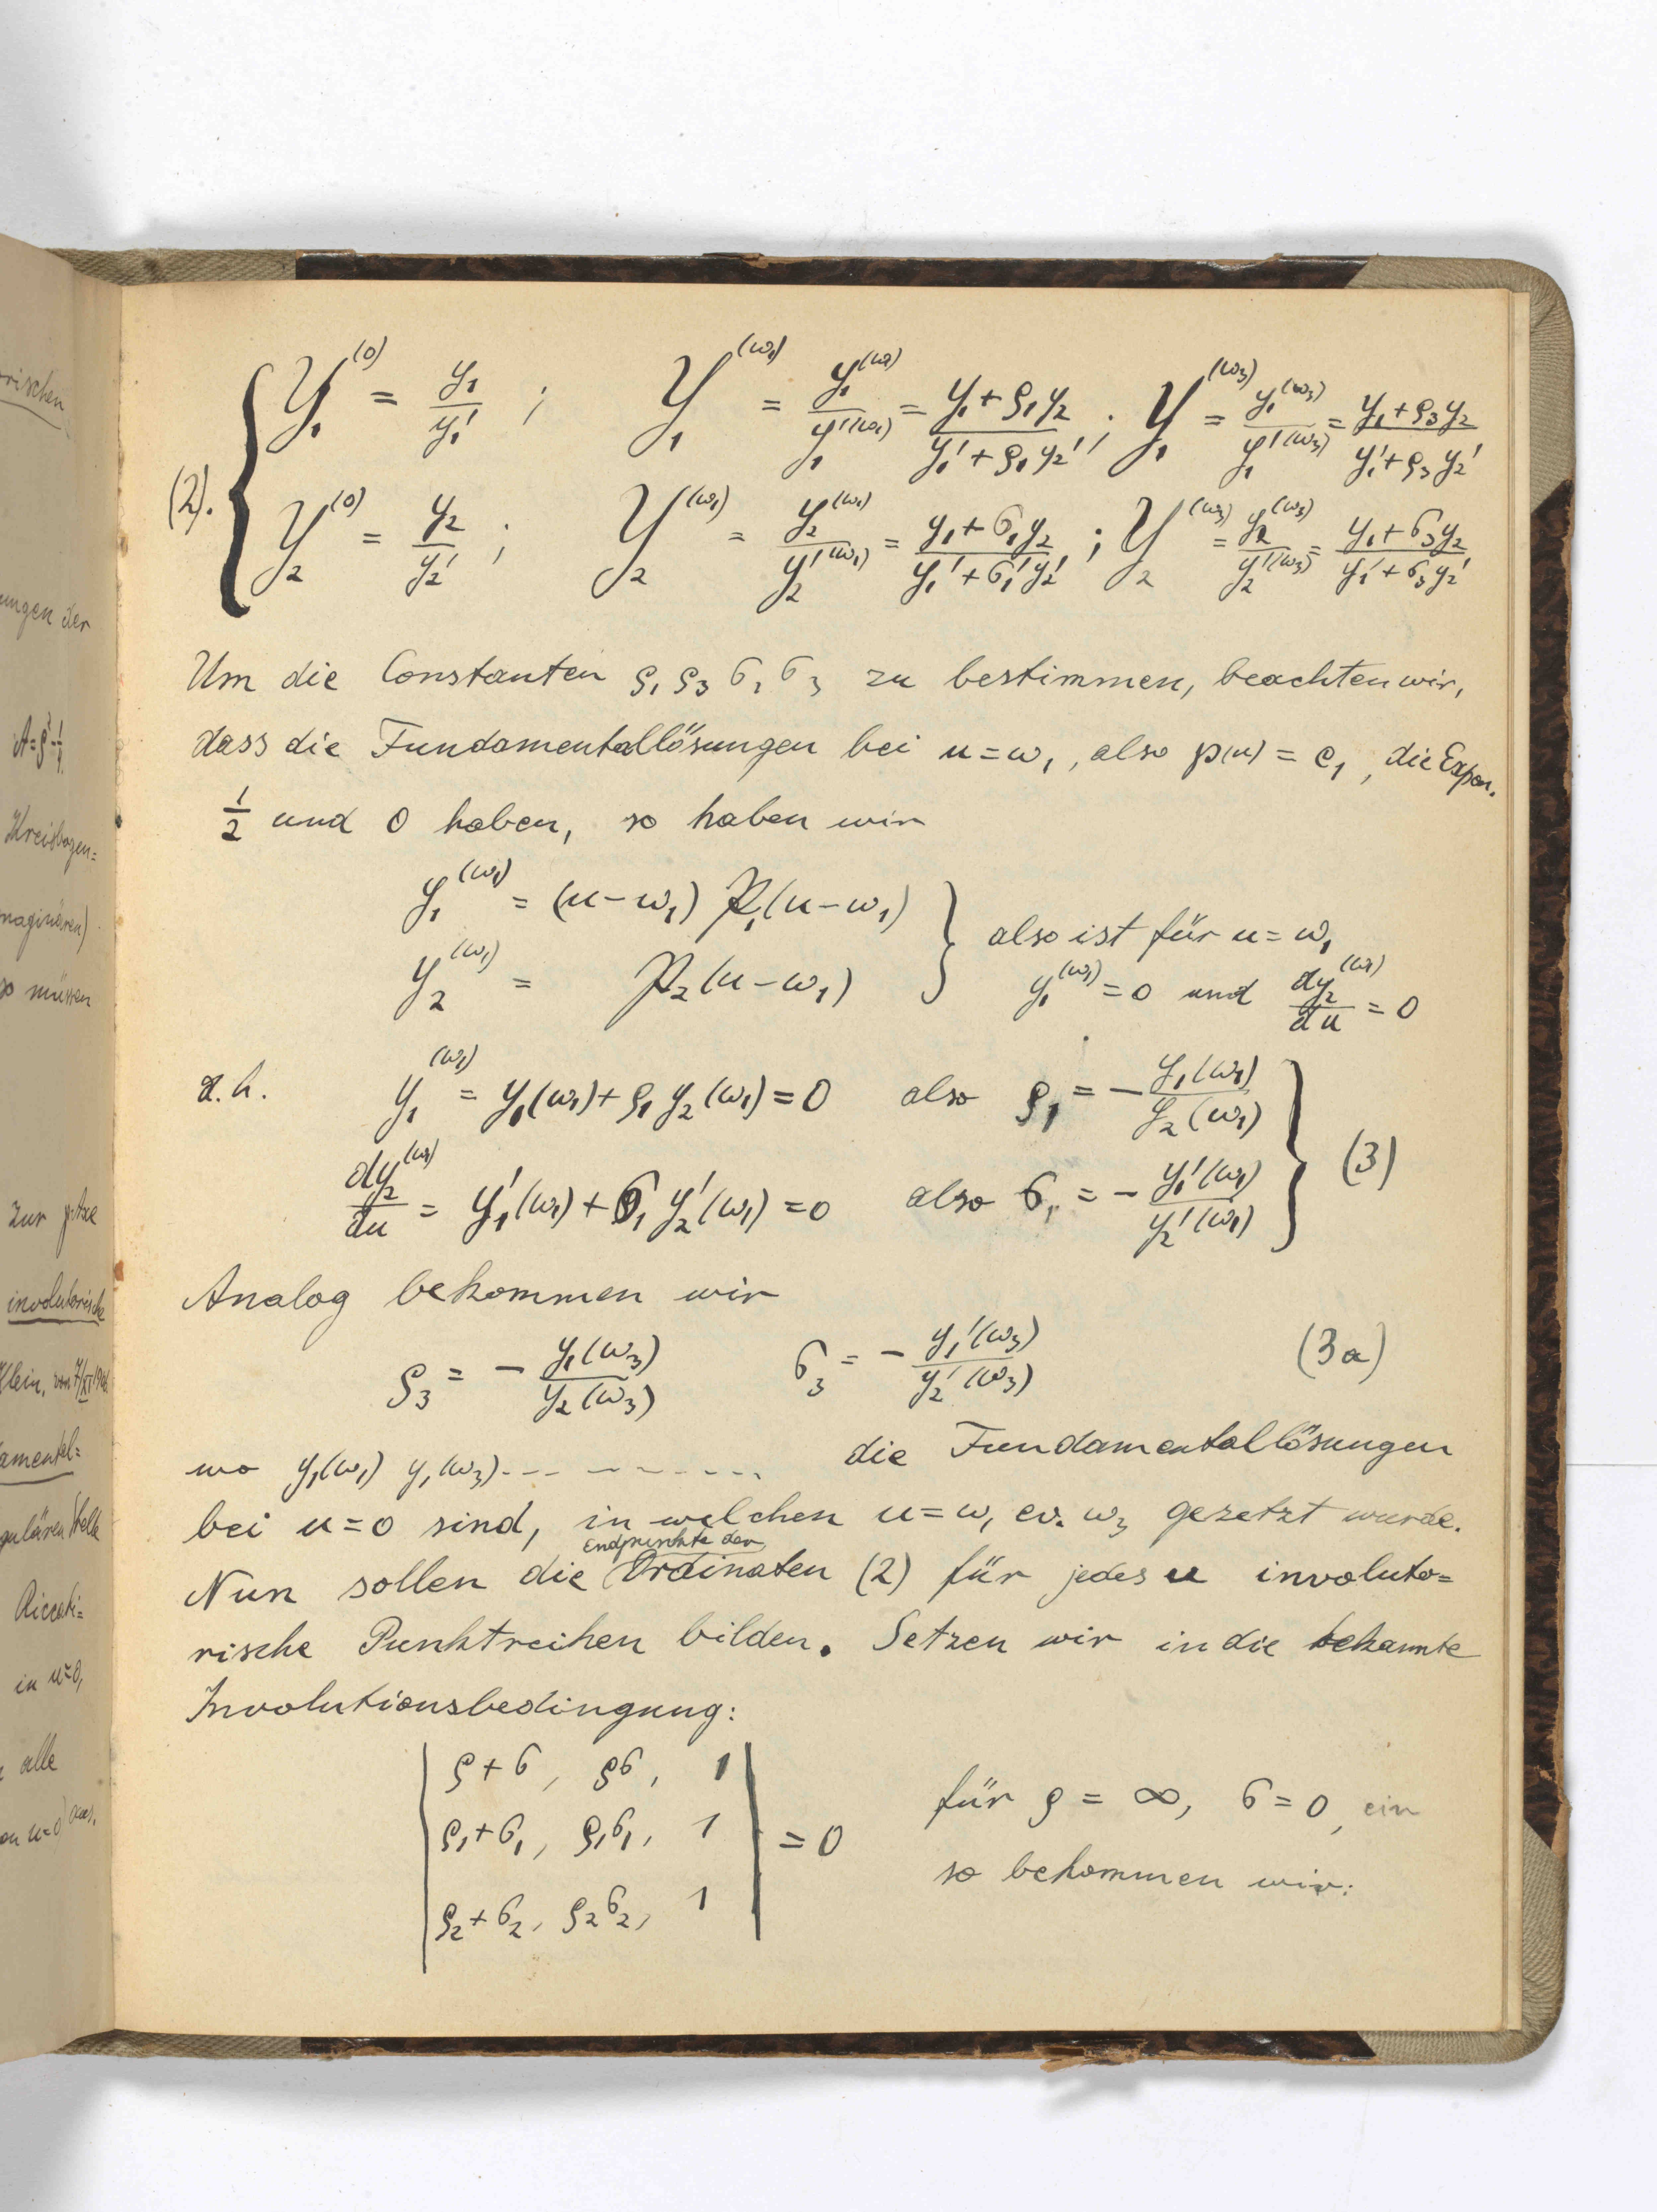 rischen
ungen der
A=ρ²-1/4
Kreisbogen=
maginären)
so müssen
Zur
involutorische
Klein, von 7/XI
amental=
gulären Stelle
Riccati=
in u=0,
alle
(2). { Y₁^(0) = y₁/y₁' ; Y₁^(ω₁) = y₁^(ω₁)/y₁'^(ω₁) = (y₁+ρ₁y₂)/(y₁'+ρ₁y₂') ; Y₁^(ω₃) = y₁^(ω₃)/y₁'^(ω₃) = (y₁+ρ₃y₂)/(y₁'+ρ₃y₂')
Y₂^(0) = y₂/y₂' ; Y₂^(ω₁) = y₂^(ω₁)/y₂'^(ω₁) = (y₁+σ₁y₂)/(y₁'+σ₁'y₂') ; Y₂^(ω₃) = y₂^(ω₃)/y₂'^(ω₃) = (y₁+σ₃y₂)/(y₁'+σ₃y₂')
Um die Constanten ρ₁ ρ₃ σ₁ σ₃ zu bestimmen, beachten wir,
dass die Fundamentallösungen bei u=ω₁, also ℘(u) = e₁, die Expon.
1/2 und 0 haben, so haben wir
y₁^(ω₁) = (u-ω₁) P₁(u-ω₁) } also ist für u=ω₁
y₂^(ω₁) = P₂(u-ω₁) y₁^(ω₁)=0 und dy₂^(ω₁)/du = 0
d.h. y₁^(ω₁) = y₁(ω₁)+ρ₁y₂(ω₁)=0 also ρ₁ = - y₁(ω₁)/y₂(ω₁)
dy₂^(ω₁)/du = y₁'(ω₁)+σ₁y₂'(ω₁)=0 also σ₁ = - y₁'(ω₁)/y₂'(ω₁) } (3)
Analog bekommen wir
ρ₃ = - y₁(ω₃)/y₂(ω₃) σ₃ = - y₁'(ω₃)/y₂'(ω₃) (3a)
wo y₁(ω₁) y₁(ω₃)---------- die Fundamentallösungen
bei u=0 sind, in welchen u=ω₁ ev. ω₃ gesetzt wurde.
Endpunkte der
Nun sollen die Ordinaten (2) für jedes u involuto=
rische Punktreihen bilden. Setzen wir in die bekannte
Involutionsbedingung:
| ρ+σ, ρσ, 1 |
| ρ₁+σ₁, ρ₁σ₁, 1 | = 0 für ρ = ∞, σ=0, ein
| ρ₂+σ₂, ρ₂σ₂, 1 | so bekommen wir: